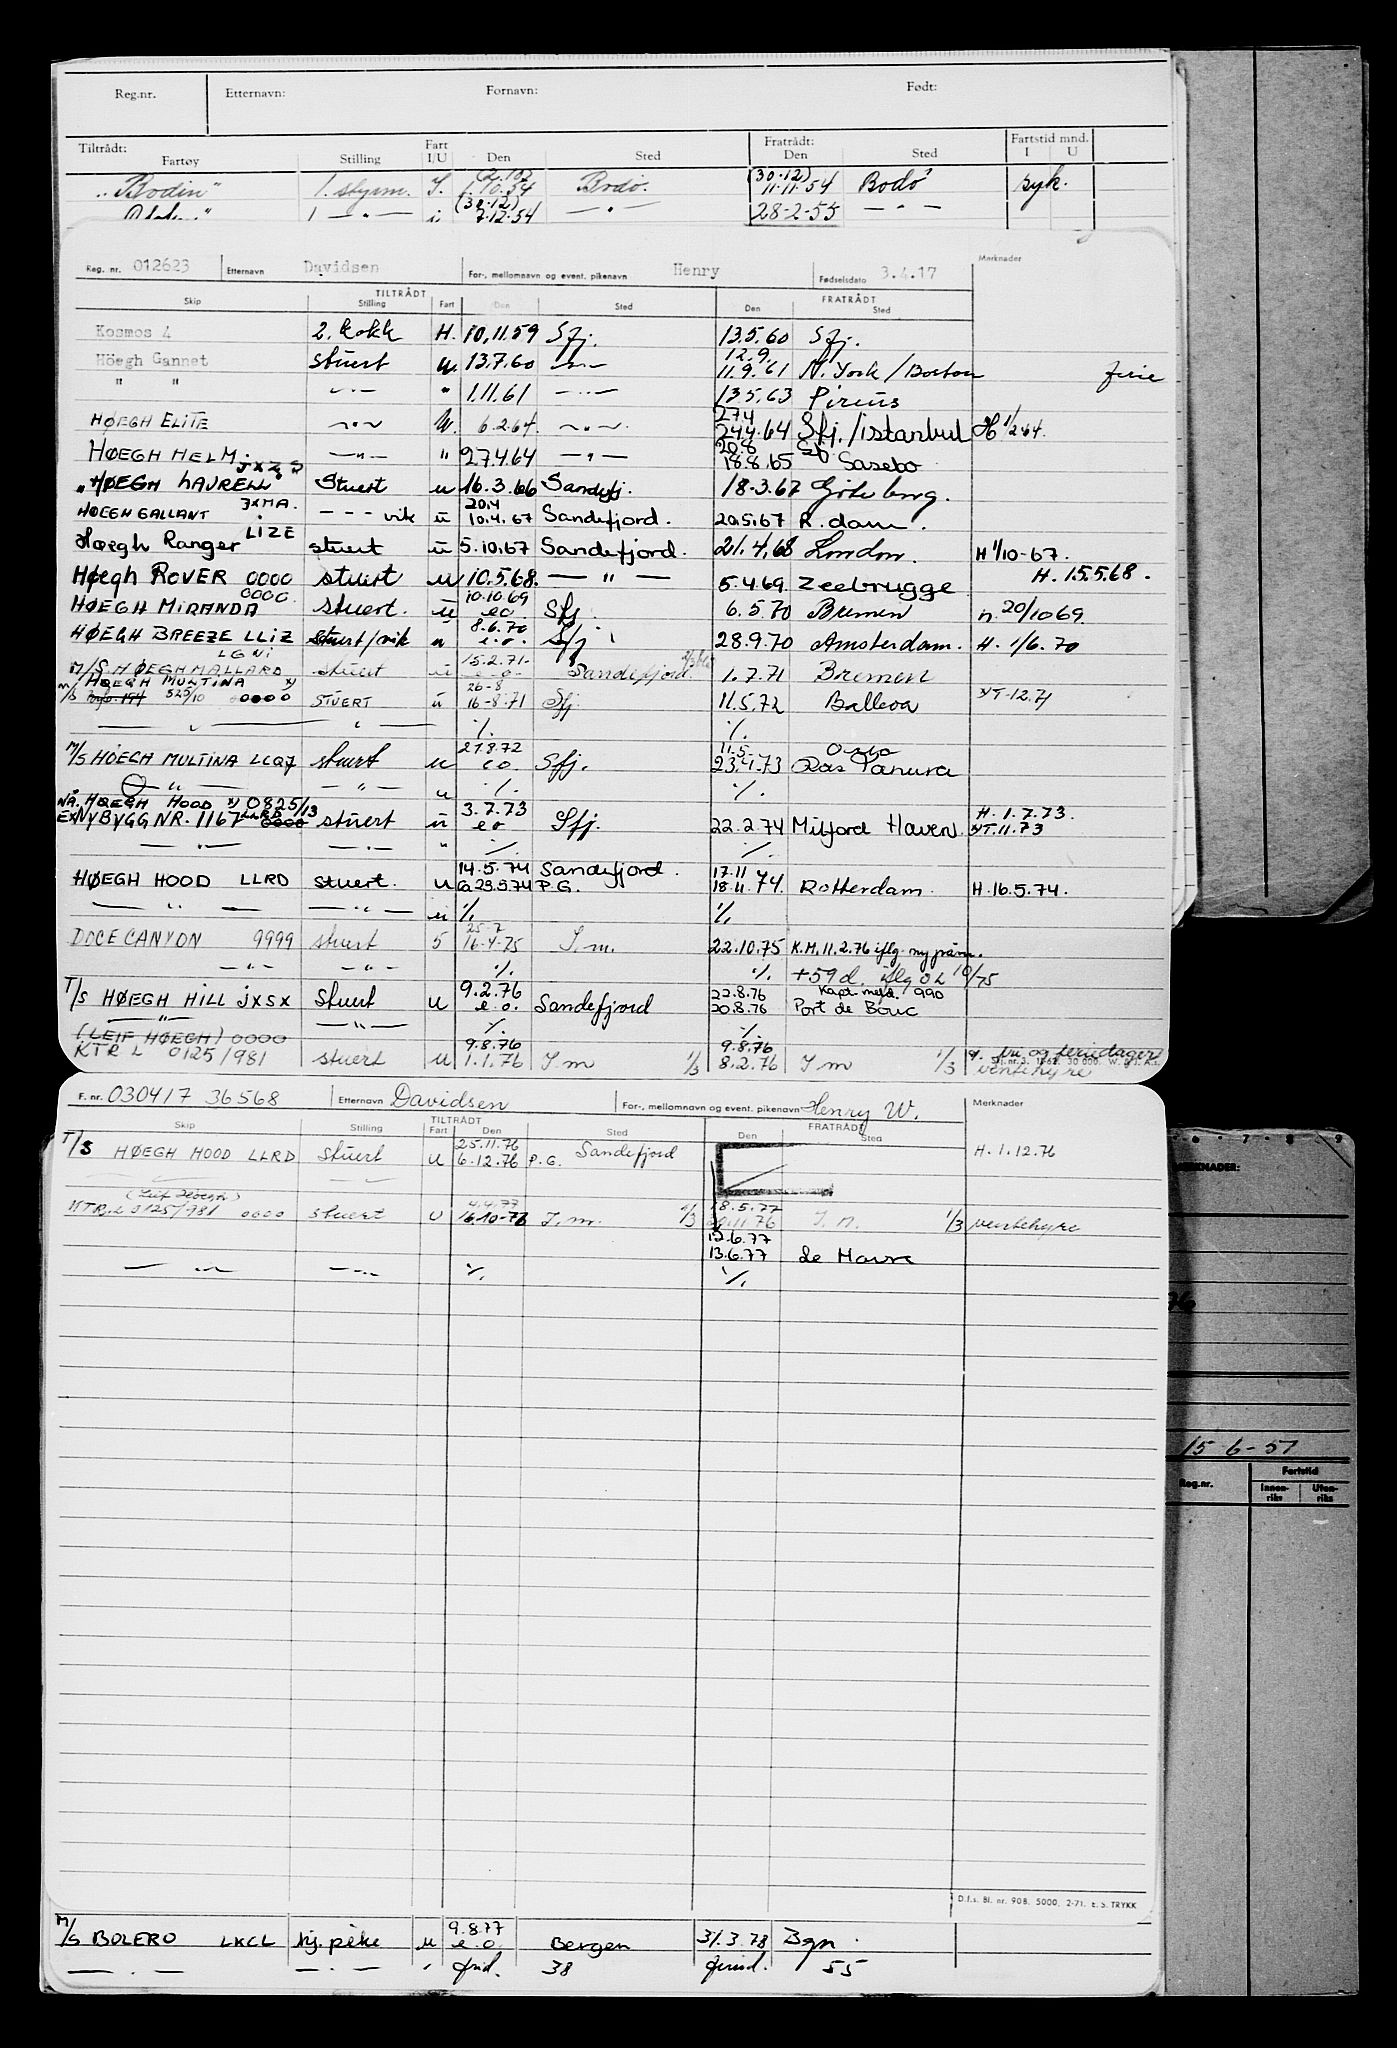 Reg.nr. Etternavn: Fornavn: Født:
Tiltrådt: Fratrådt: Fartstid mnd.
Fartøy Stilling Fart I/U Den Sted Den Sted I U
"Bodin" 1. styrm. I. 1.10.54 Bodø. (30-12) 11-11-54 Bodø syk.
1 — " — i (30-12) 7-12-54 — " — 28-2-55 — " —
Reg. nr. 012623 Etternavn Davidsen For-, mellomnavn og event. pikenavn Henry Fødselsdato 3.4.17 Merknader
TILTRÅDT FRATRÅDT
Skip Stilling Fart Den Sted Den Sted
Kosmos 4 2. kokk H. 10.11.59 Sfj. 13.5.60 Sfj.
Höegh Gannet stuert u. 13.7.60 — " — 12.9. 11.9.61 N. York / Boston ferie
" " — " — " 1.11.61 — " — 13.5.63 Pireus
HØEGH ELITE — " — U. 6.2.64. — " — 27.4 24.4.64 Sfj./istanbul H 1/2-64.
HØEGH HELM — " — " 27.4.64 — " — 20.8 18.8.65 Sasebo
JXZS
"HØEGH LAURELL" Stuert u 16.3.66 Sandefj. 18-3.67 Göteborg.
HØEGH GALLANT JXMA. - - - vik ü 20.4 10.4.67 Sandefjord. 20.5.67 R.dam.
Høegh Ranger LIZE stuert ü 5.10.67 Sandefjord. 21.4.68 London. H 1/10-67.
Høegh ROVER 0000 stuert u 10.5.68. — " — 5.4.69. Zeebrugge H. 15.5.68.
HØEGH MIRANDA 0000. stuert. ü 10.10.69 e.o. Sfj. 6.5.70 Bremen n. 20/10 69
HØEGH BREEZE LLIZ stuert/vik u 8.6.70 e.o. Sfj. 28.9.70 Amsterdam. H. 1/6.70
M/S. HØEGH MALLARD LGNI stuert ü 15.2.71. e.o. Sandefjord 1.7.71 Bremen
M/S HØEGH MULTINA x) 525/10 0000 STUERT ü 26-8 16-8.71 Sfj. 11.5.72 Balboa x)T-12.71
— " — %. %.
M/S HÖEGH MULTINA LCQ7 stuert u 27.8.72 e.o. Sfj. 11.5. 23.4.73 Oslo Ras Tanura
— " — — " — u %. %.
NÅ. HØEGH HOOD x) 0825/13
EX NYBYGG NR. 1167 LLRD 0000 stuert ü 3.7.73 e.o Sfj. 22.2.74 Milford Haven. H. 1.7.73. x)T.11.73
— " — — " — " %. %.
HØEGH HOOD LLRD stuert. u 14.5.74 ca 23.5.74 Sandefjord. P.G. 17.11 18.11.74. Rotterdam. H.16.5.74.
— " — — " — u %. %.
DOCECANYON 9999 stuert 5 25-7 16-4-75 I.m. 22.10.75 K.M. 11.2.76 iflg. ny
— " — — " — %. %. +59d. iflg 10/75
T/S HØEGH HILL JXSX Stuert U 9.2.76 e.o. Sandefjord 22.8.76 20.8.76 Kapt. meld. 990 Port de Bouc
— " — — " — %. %.
(LEIF HØEGH) 0000
KTR L 0125/981 stuert u 9.8.76 1.1.76 I m 1/3 9.8.76 8.2.76 I m 1/3 fri og feriedager ventehyre
Skj. nr. 3. 30 000. W.
F. nr. 030417 36568 Etternavn Davidsen For-, mellomnavn og event. pikenavn Henry W. Merknader
TILTRÅDT FRATRÅDT
Skip Stilling Fart Den Sted Den Sted
T/S HØEGH HOOD LLRD Stuert u 25.11.76 6.12.76 P.G. Sandefjord H. 1.12.76
— " — — " —
(Leif Høegh)
KTR.L 0125/981 0000 stuert U 4.4.77 16.10-76 I.m. 1/3 18.5.77 20.11.76 I.M. 1/3 ventehyre
12.6.77
13.6.77 Le Havre
— " — — " — %. %.
D.f.s. Bl. nr. 908. 5000. 2-71. E. S. TRYKK
M/S BOLERO LKCL hj. pike u 9.8.77 e.o. Bergen 31.3.78 Bgn.
— " — — " — " 38 55
6 - 7 - 8 - 9
MERKNADER:
76
15 6-57
Reg.nr. Fartstid
Innen-riks Uten-riks